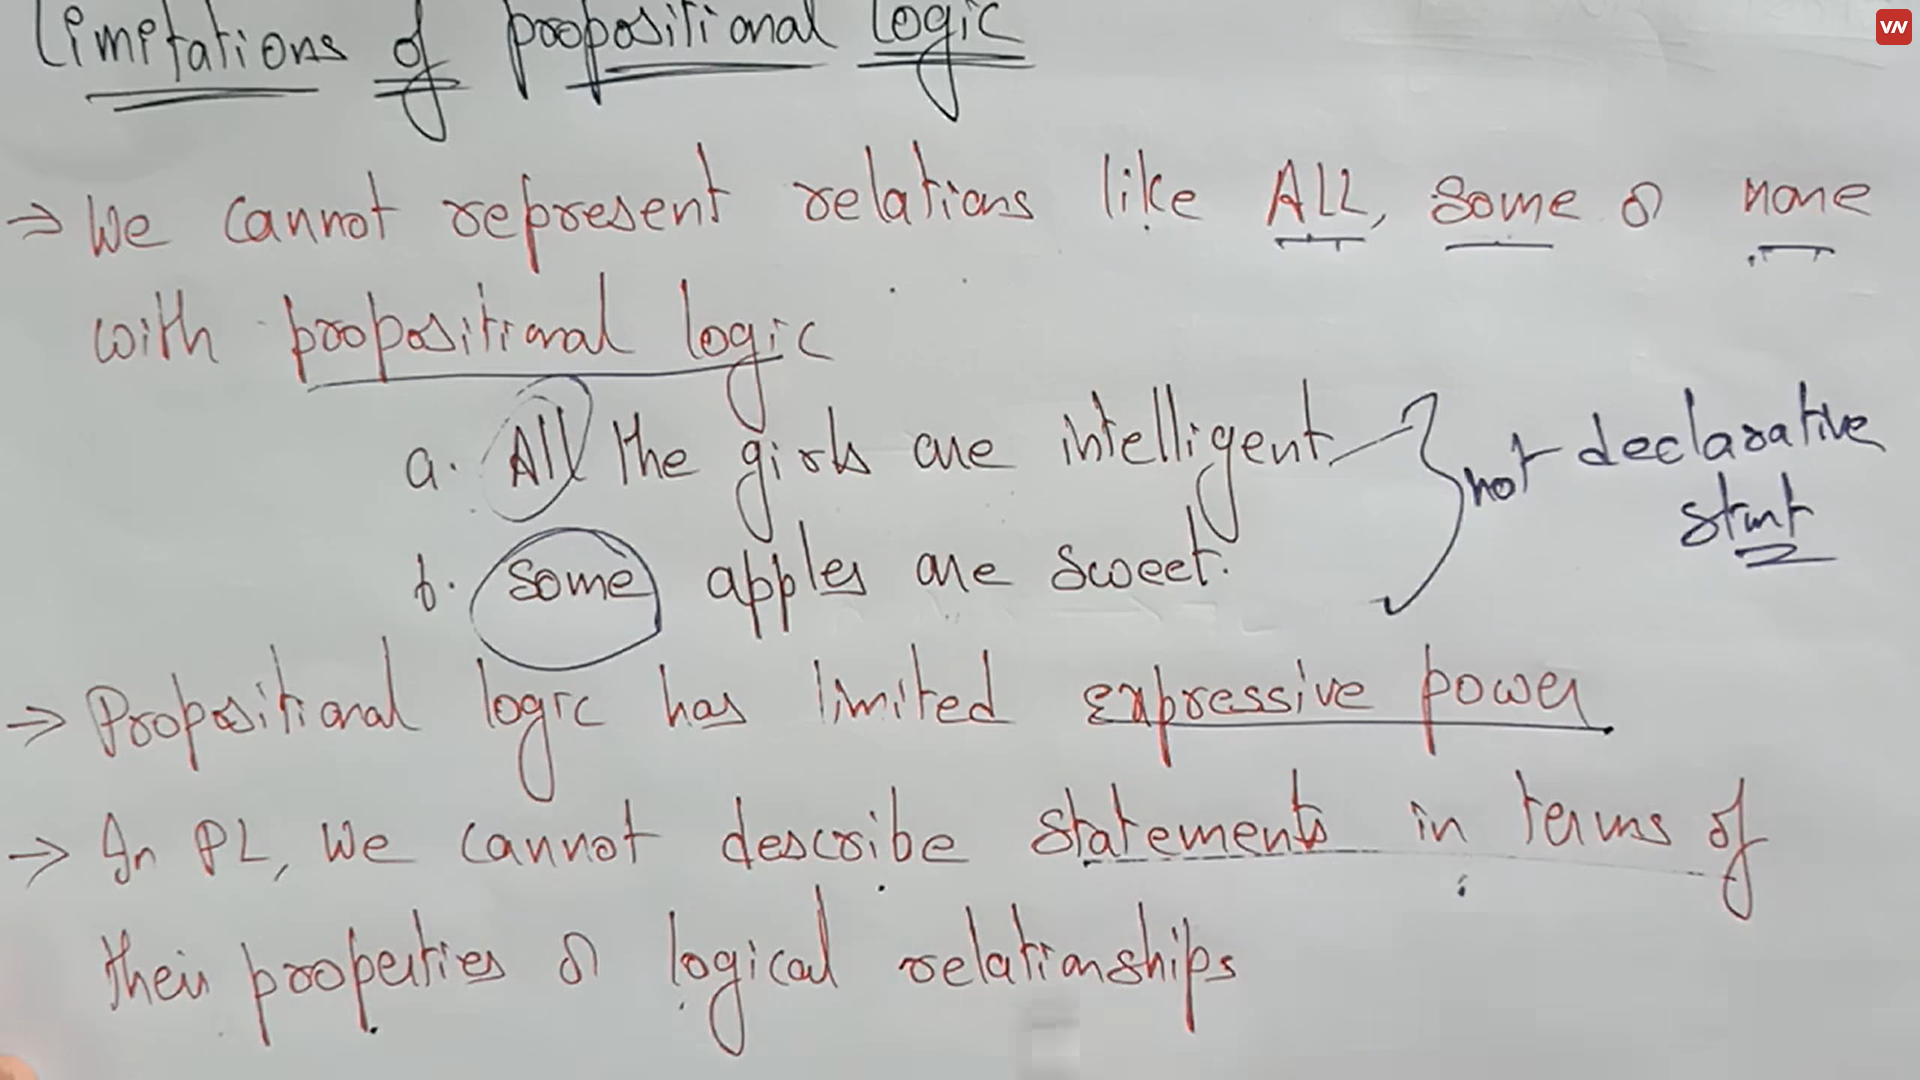 Limitations of propositional Logic
→ We cannot represent relations like ALL, some or none
with propositional logic
a. All the girls are intelligent
not declarative
stmt
b. Some apples are sweet.
→ Propositional logic has limited expressive power
→ In PL, we cannot describe statements in terms of
their properties or logical relationships
VN